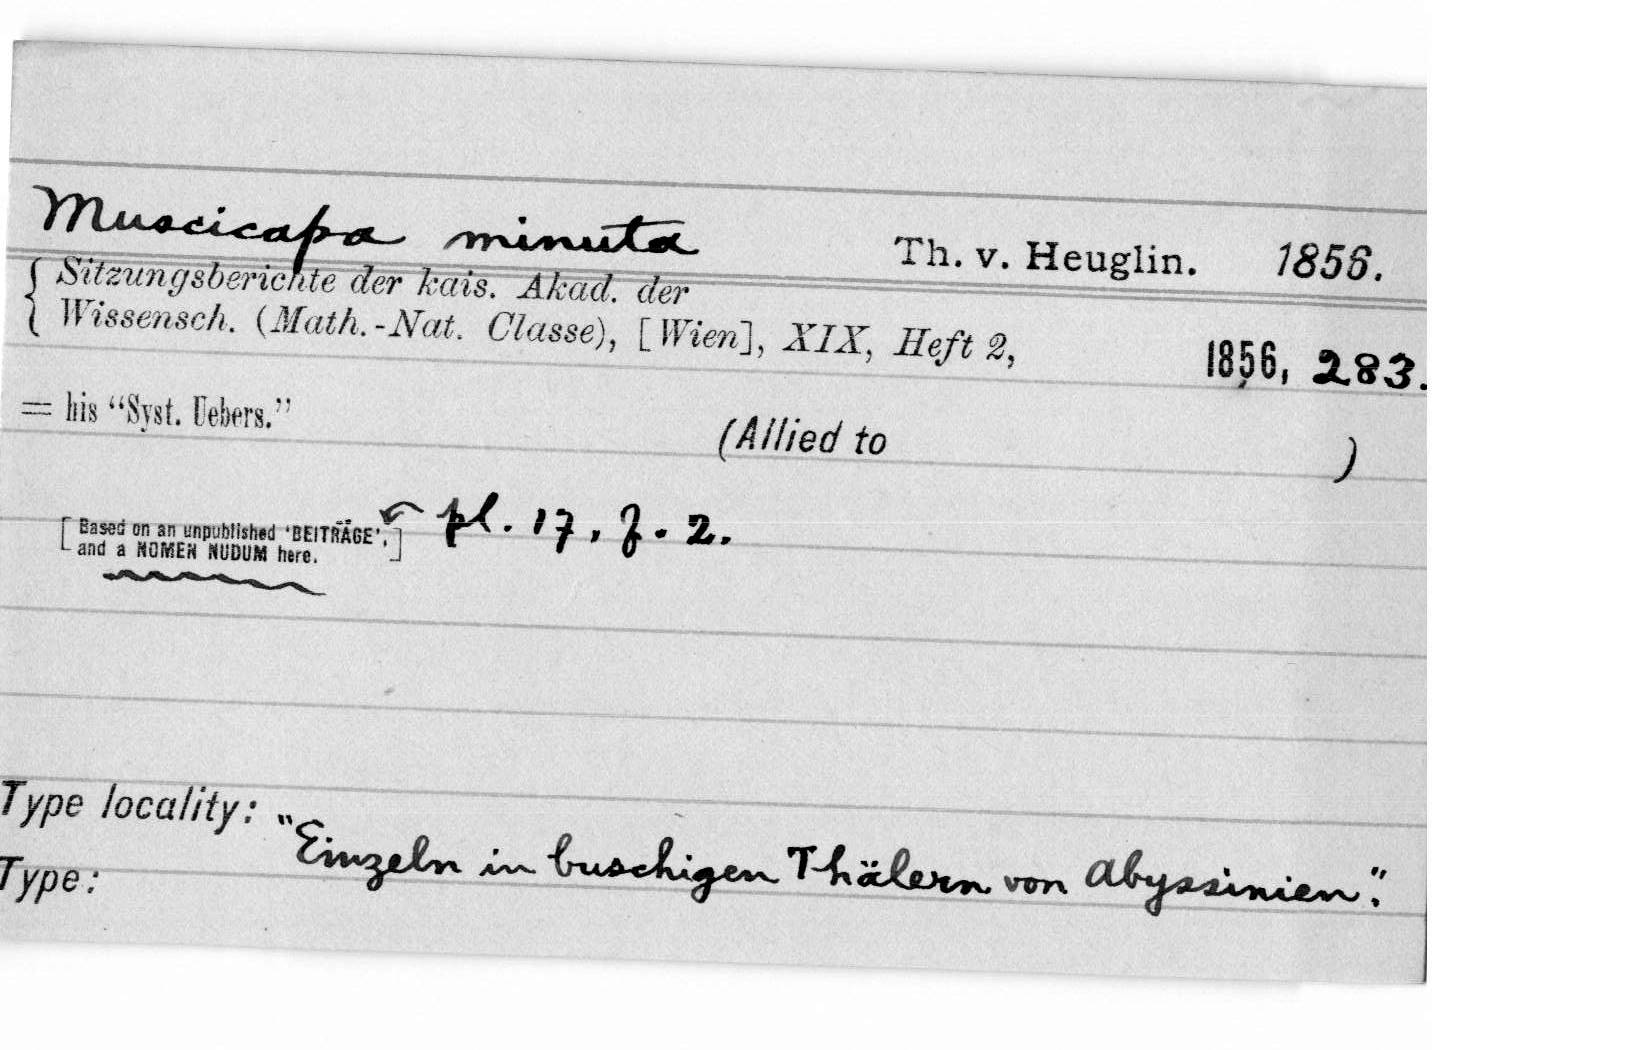 Muscicapa minuta Th. v. Heuglin. 1856.
{ Sitzungsberichte der kais. Akad. der
Wissensch. (Math.-Nat. Classe), [Wien], XIX, Heft 2, 1856, 283.
= his “Syst. Uebers.”
(Allied to )
[Based on an unpublished ‘BEITRÄGE’, pl. 17, f. 2.
and a NOMEN NUDUM here.]
Type locality: "Einzeln in buschigen Thälern von Abyssinien".
Type: